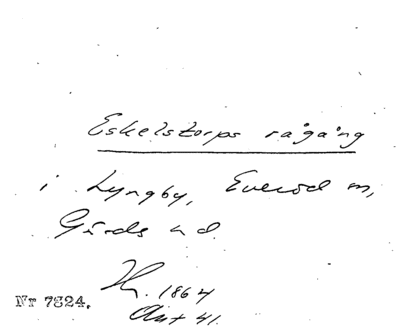 Eskelstorps rågång
i Lyngby, Everöd m,
Gärds h d.
H. 1864
Akt 41.
Nr 7824.